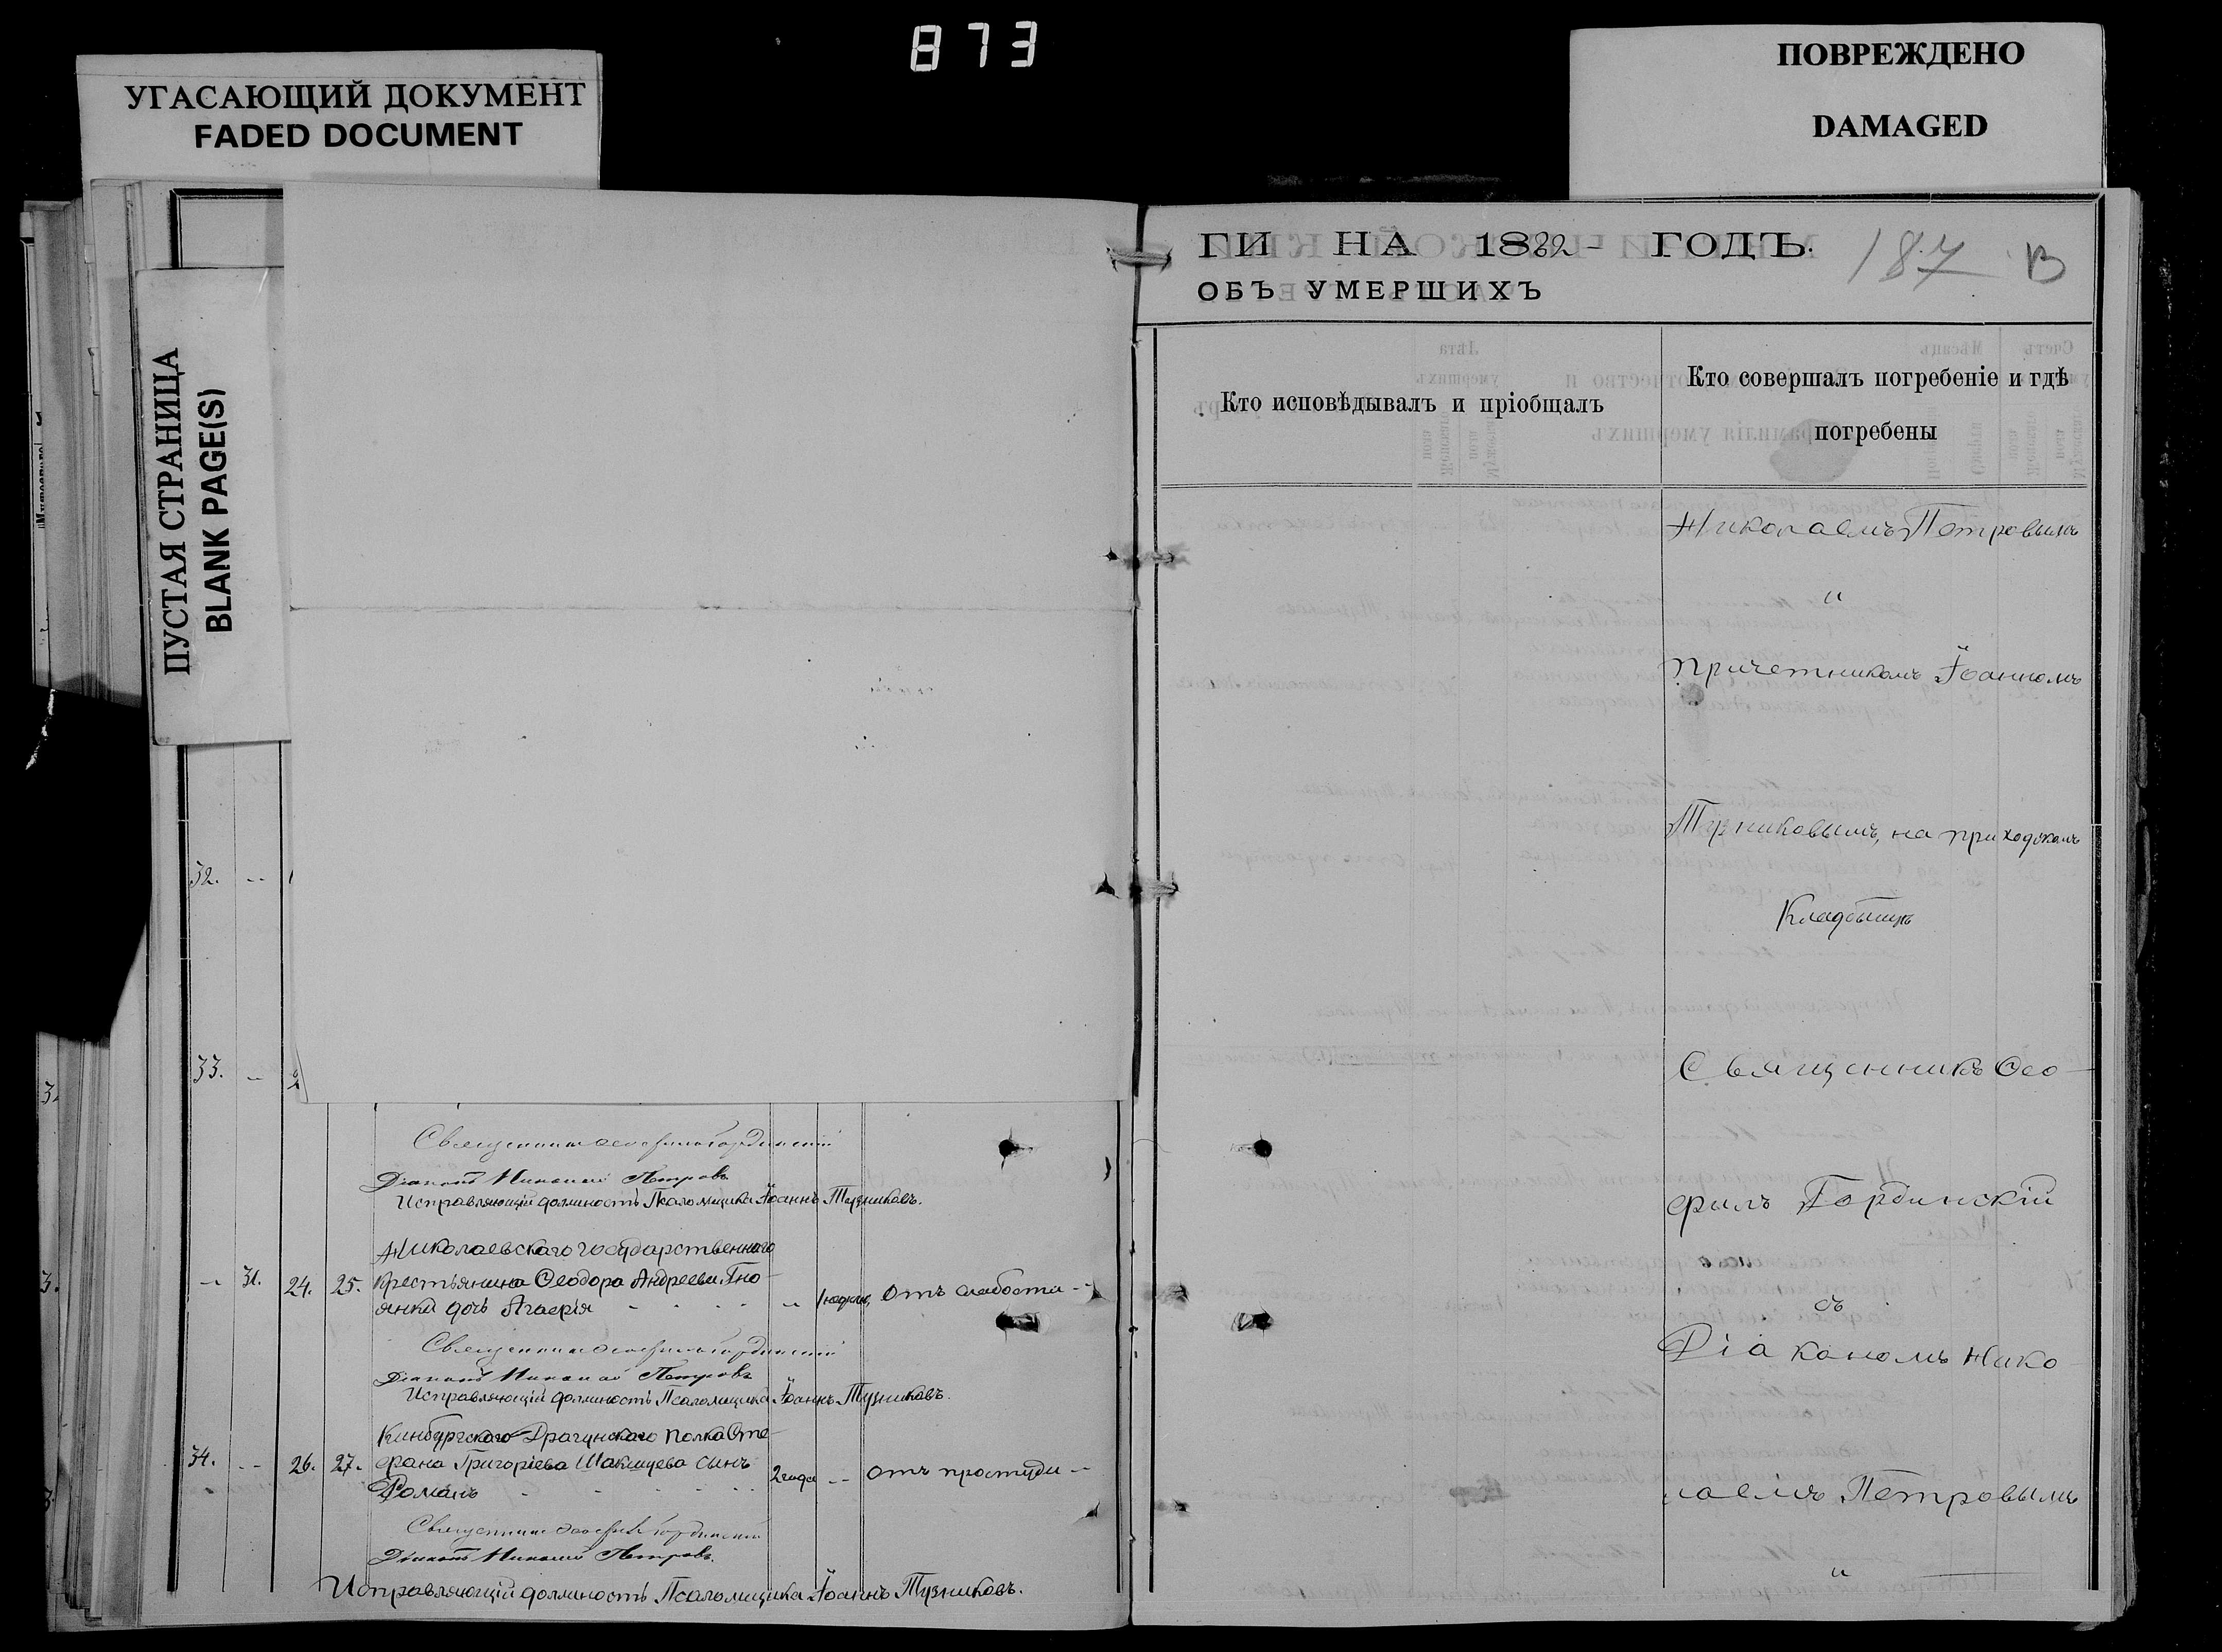 873
УГАСАЮЩИЙ ДОКУМЕНТ
FADED DOCUMENT
ПОВРЕЖДЕНО
DAMAGED
ПУСТАЯ СТРАНИЦА
BLANK PAGE(S)
32. --
33. --
Священникъ Ѳеофилъ Гординскій
Діаконъ Николай Петровъ
Исправляющій должность Псаломщика Іоаннъ Тузниковъ.
Николаевскаго государственнаго
-- 31. 24. 25. крестьянина Ѳеодора Андреева Гно-
янки дочь Агаѳія -- 1 недѣли, Отъ слабости --
Священникъ Ѳеофилъ Гординскій
Діаконъ Николай Петровъ
Исправляющій должность Псаломщика Іоаннъ Тузниковъ.
Кинбургскаго Драгунскаго полка Сте-
34. -- 26. 27. фана Григоріева сынъ 2 года -- отъ простуди --
Романъ
Священникъ Ѳеофилъ Гординскій
Діаконъ Николай Петровъ.
Исправляющій должность Псаломщика Іоаннъ Тузниковъ.
ГИ НА 1882 - ГОДЪ. 187 В
ОБЪ УМЕРШИХЪ
Кто исповѣдывалъ и пріобщалъ
Кто совершалъ погребеніе и гдѣ
погребены
Николаемъ Петровымъ
и
причетникомъ Іоанномъ
Тузниковымъ, на приходскомъ
Кладбищѣ
Священникъ Ѳео-
филъ Гординскій
съ
Діакономъ Нико-
лаемъ Петровымъ
и